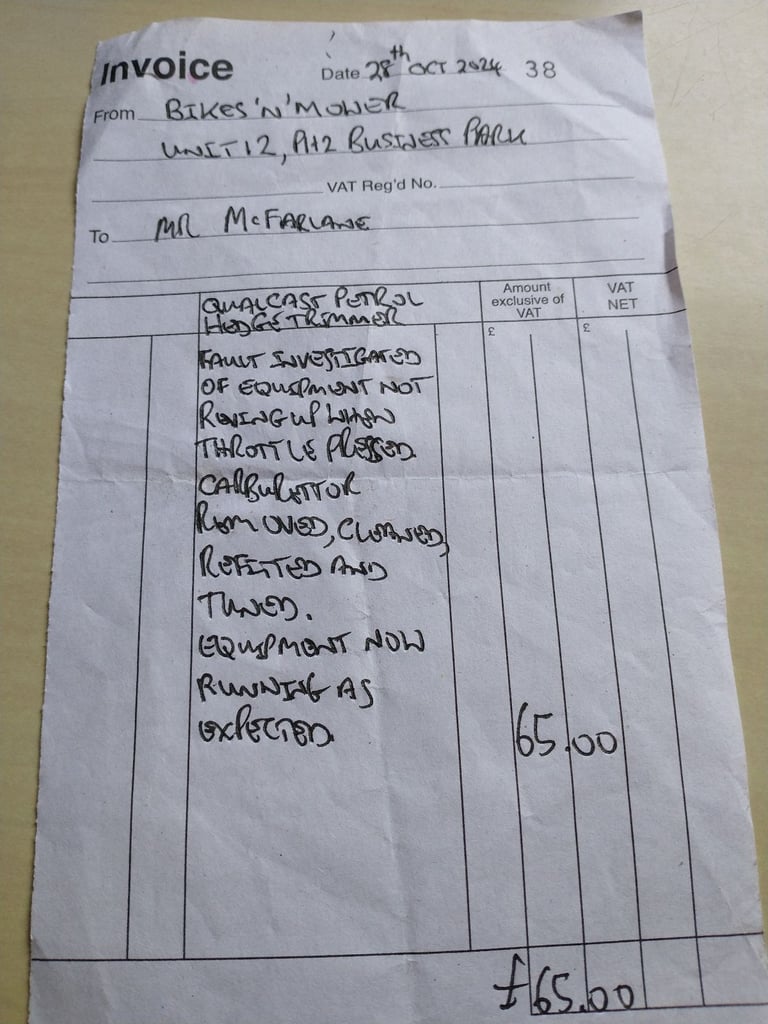 Invoice
Date 28th OCT 2024 38
From BIKES 'N' MOWER
UNIT 12, A12 BUSINESS PARK
VAT Reg'd No.
To MR McFARLANE
QUALCAST PETROL
HEDGETRIMMER
Amount
exclusive of
VAT
VAT
NET
£ £
FAULT INVESTIGATED
OF EQUIPMENT NOT
REVING UP WHEN
THROTTLE PRESSED.
CARBURETTOR
REMOVED, CLEANED,
REFITTED AND
TUNED.
EQUIPMENT NOW
RUNNING AS
EXPECTED. 65.00
£65.00